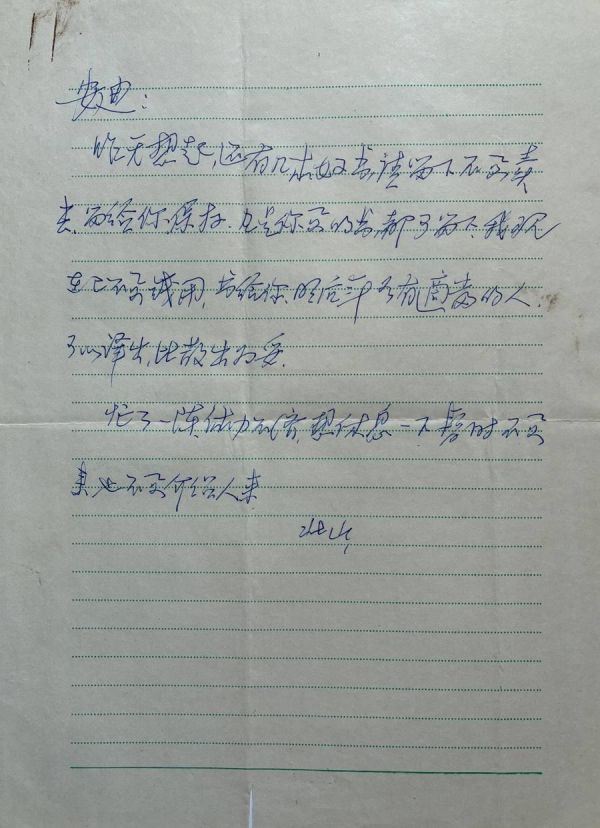 安迪：
昨天想起,还有几本好书,请留下不要卖
去,留给你保存.凡是你要的书,都可留下.我现
在已不要钱用,书给你,明后年如有适当的人.
可以译出,比散出为妥.
忙了一阵,体力不济,想休息一下,暂时不要
来,也不要介绍人来